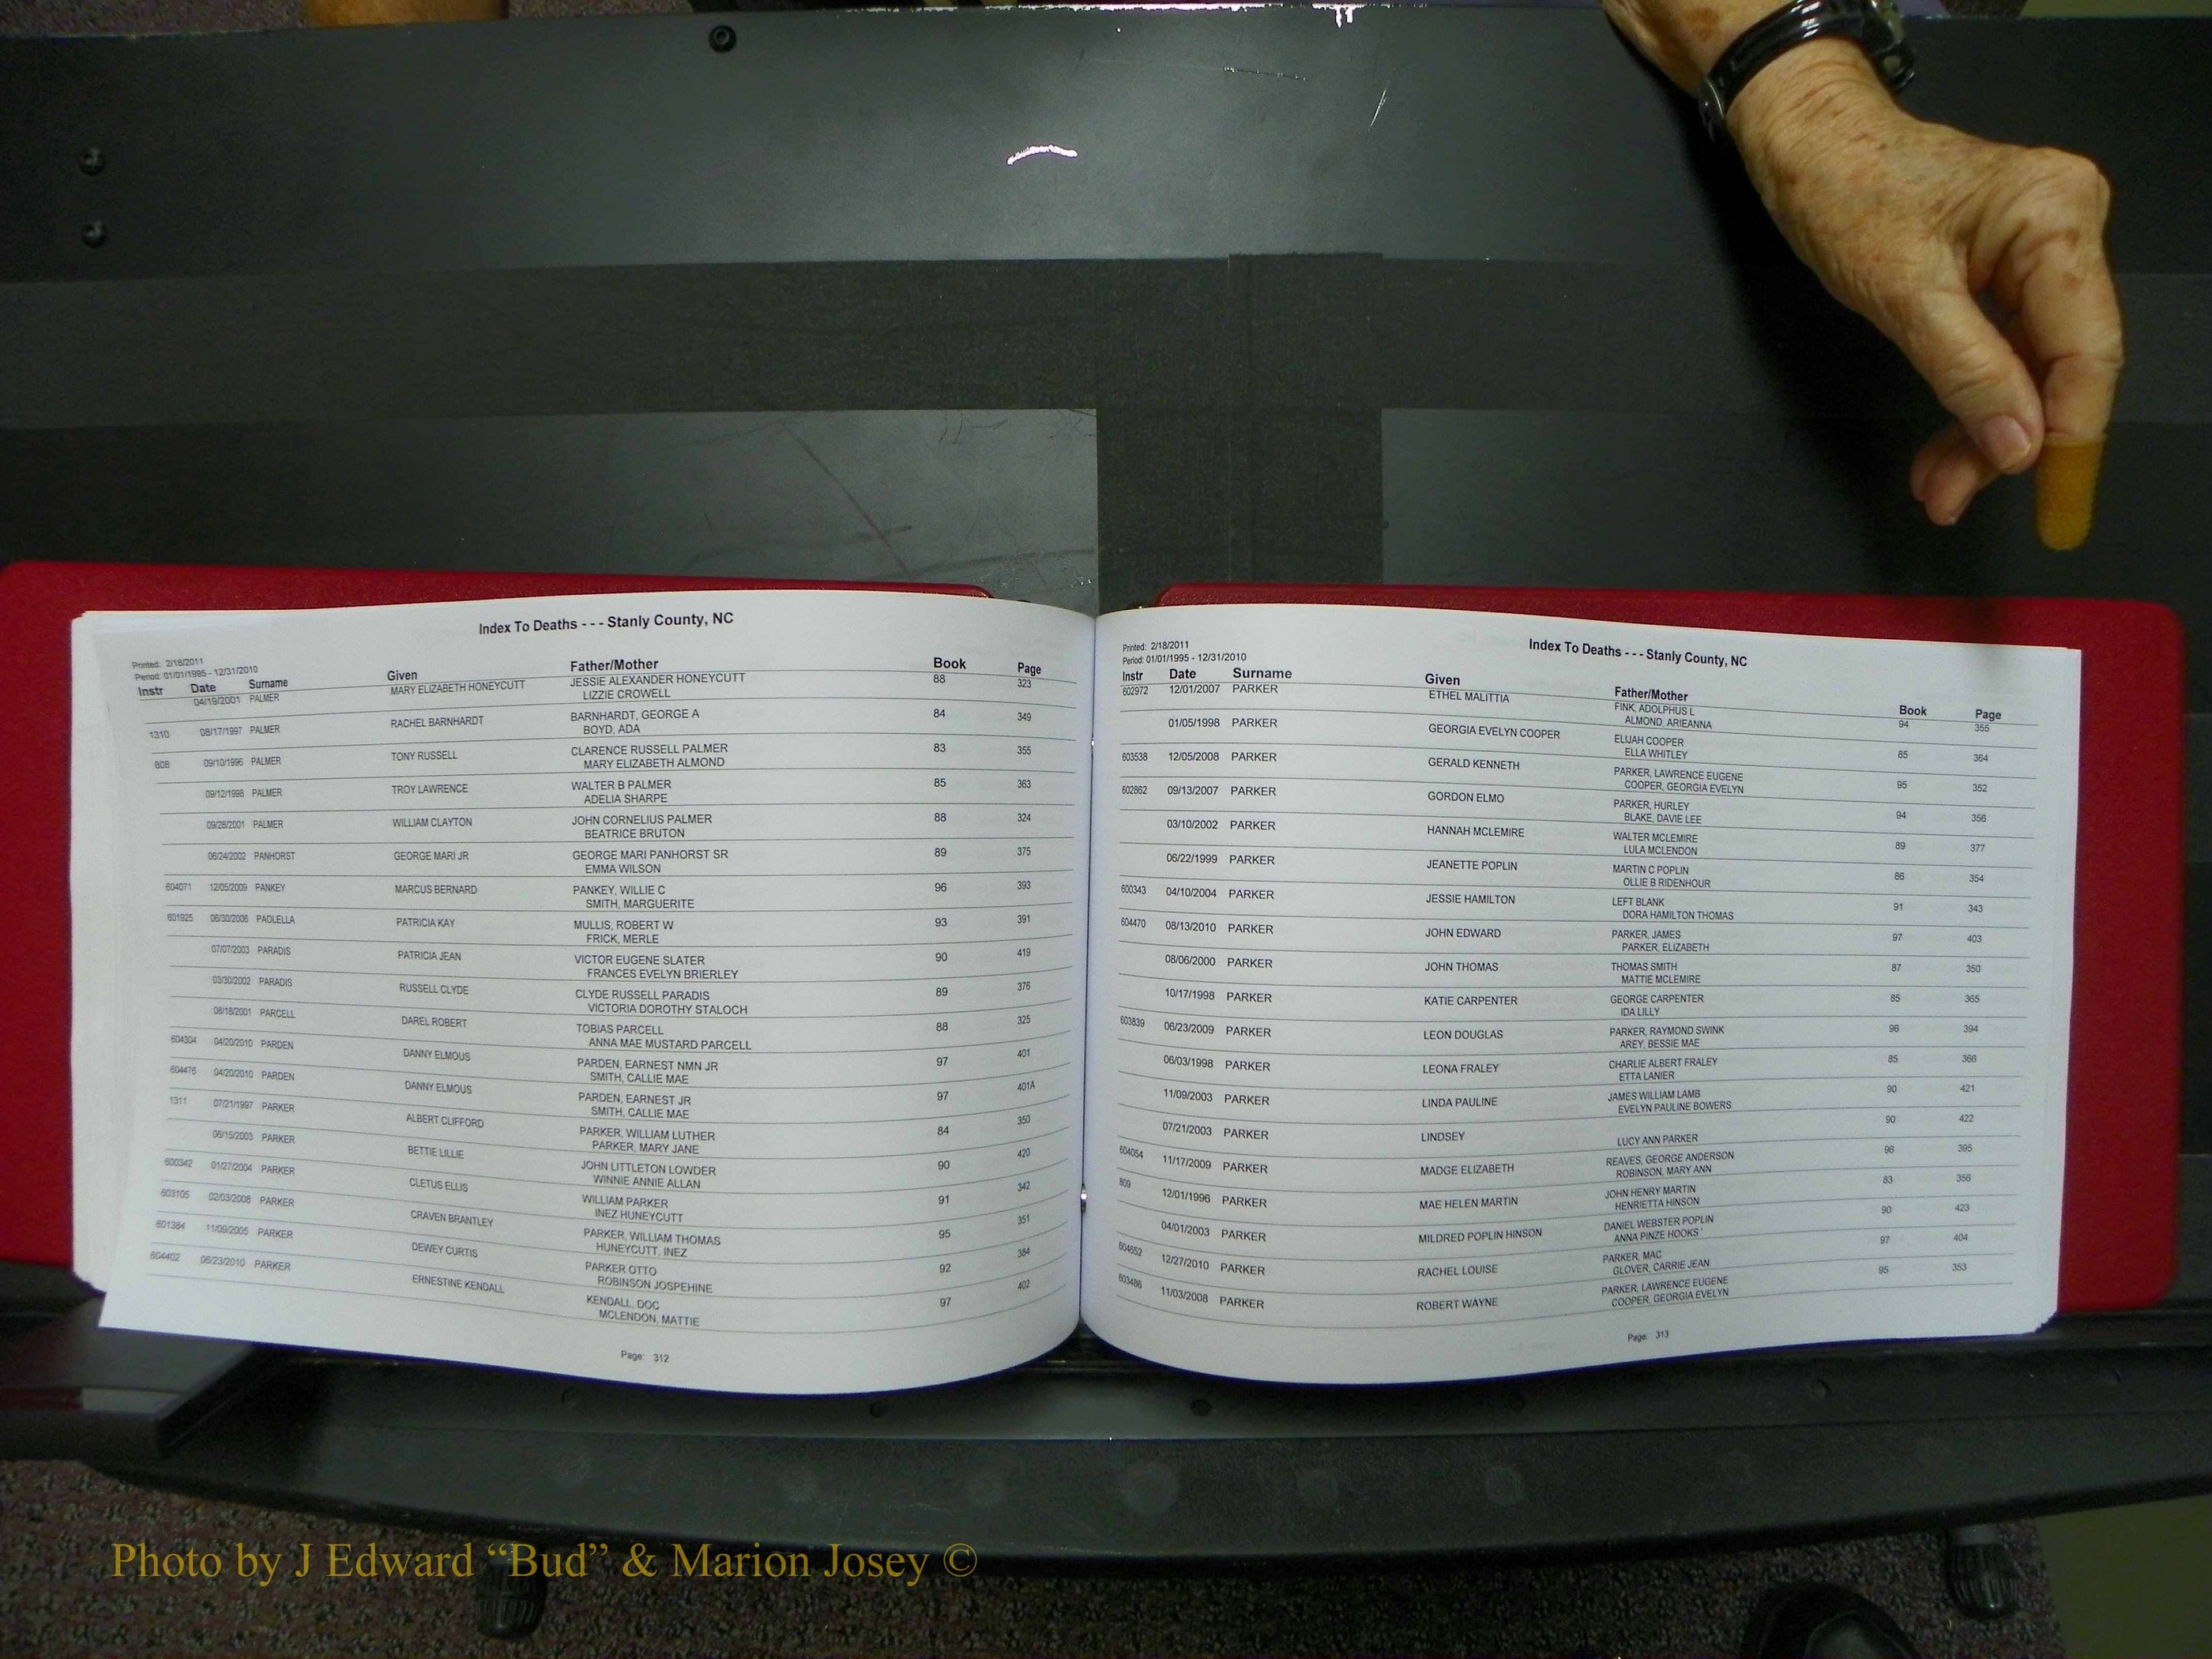 Index To Deaths - - - Stanly County, NC
Printed: 2/18/2011
Period: 01/01/1995 - 12/31/2010
Instr Date Surname Given Father/Mother Book Page
04/19/2001 PALMER MARY ELIZABETH HONEYCUTT JESSIE ALEXANDER HONEYCUTT 88 323
LIZZIE CROWELL
1310 08/17/1997 PALMER RACHEL BARNHARDT BARNHARDT, GEORGE A 84 349
BOYD, ADA
808 09/10/1996 PALMER TONY RUSSELL CLARENCE RUSSELL PALMER 83 355
MARY ELIZABETH ALMOND
09/12/1998 PALMER TROY LAWRENCE WALTER B PALMER 85 363
ADELIA SHARPE
09/28/2001 PALMER WILLIAM CLAYTON JOHN CORNELIUS PALMER 88 324
BEATRICE BRUTON
06/24/2002 PANHORST GEORGE MARI JR GEORGE MARI PANHORST SR 89 375
EMMA WILSON
604071 12/05/2009 PANKEY MARCUS BERNARD PANKEY, WILLIE C 96 393
SMITH, MARGUERITE
601925 06/30/2006 PAOLELLA PATRICIA KAY MULLIS, ROBERT W 93 391
FRICK, MERLE
07/07/2003 PARADIS PATRICIA JEAN VICTOR EUGENE SLATER 90 419
FRANCES EVELYN BRIERLEY
03/30/2002 PARADIS RUSSELL CLYDE CLYDE RUSSELL PARADIS 89 376
VICTORIA DOROTHY STALOCH
08/18/2001 PARCELL DAREL ROBERT TOBIAS PARCELL 88 325
ANNA MAE MUSTARD PARCELL
604304 04/20/2010 PARDEN DANNY ELMOUS PARDEN, EARNEST NMN JR 97 401
SMITH, CALLIE MAE
604476 04/20/2010 PARDEN DANNY ELMOUS PARDEN, EARNEST JR 97 401A
SMITH, CALLIE MAE
1311 07/21/1997 PARKER ALBERT CLIFFORD PARKER, WILLIAM LUTHER 84 350
PARKER, MARY JANE
06/15/2003 PARKER BETTIE LILLIE JOHN LITTLETON LOWDER 90 420
WINNIE ANNIE ALLAN
600342 01/27/2004 PARKER CLETUS ELLIS WILLIAM PARKER 91 342
INEZ HUNEYCUTT
603105 02/03/2008 PARKER CRAVEN BRANTLEY PARKER, WILLIAM THOMAS 95 351
HUNEYCUTT, INEZ
601384 11/09/2005 PARKER DEWEY CURTIS PARKER OTTO 92 384
ROBINSON JOSPEHINE
604402 06/23/2010 PARKER ERNESTINE KENDALL KENDALL, DOC 97 402
MCLENDON, MATTIE
Page: 312
Index To Deaths - - - Stanly County, NC
Printed: 2/18/2011
Period: 01/01/1995 - 12/31/2010
Instr Date Surname Given Father/Mother Book Page
602972 12/01/2007 PARKER ETHEL MALITTIA FINK, ADOLPHUS L 94 355
ALMOND, ARIEANNA
01/05/1998 PARKER GEORGIA EVELYN COOPER ELIJAH COOPER 85 364
ELLA WHITLEY
603538 12/05/2008 PARKER GERALD KENNETH PARKER, LAWRENCE EUGENE 95 352
COOPER, GEORGIA EVELYN
602862 09/13/2007 PARKER GORDON ELMO PARKER, HURLEY 94 356
BLAKE, DAVIE LEE
03/10/2002 PARKER HANNAH MCLEMIRE WALTER MCLEMIRE 89 377
LULA MCLENDON
06/22/1999 PARKER JEANETTE POPLIN MARTIN C POPLIN 86 354
OLLIE B RIDENHOUR
600343 04/10/2004 PARKER JESSIE HAMILTON LEFT BLANK 91 343
DORA HAMILTON THOMAS
604470 08/13/2010 PARKER JOHN EDWARD PARKER, JAMES 97 403
PARKER, ELIZABETH
08/06/2000 PARKER JOHN THOMAS THOMAS SMITH 87 350
MATTIE MCLEMIRE
10/17/1998 PARKER KATIE CARPENTER GEORGE CARPENTER 85 365
IDA LILLY
603839 06/23/2009 PARKER LEON DOUGLAS PARKER, RAYMOND SWINK 96 394
AREY, BESSIE MAE
06/03/1998 PARKER LEONA FRALEY CHARLIE ALBERT FRALEY 85 366
ETTA LANIER
11/09/2003 PARKER LINDA PAULINE JAMES WILLIAM LAMB 90 421
EVELYN PAULINE BOWERS
07/21/2003 PARKER LINDSEY 90 422
LUCY ANN PARKER
604054 11/17/2009 PARKER MADGE ELIZABETH REAVES, GEORGE ANDERSON 96 395
ROBINSON, MARY ANN
809 12/01/1996 PARKER MAE HELEN MARTIN JOHN HENRY MARTIN 83 356
HENRIETTA HINSON
04/01/2003 PARKER MILDRED POPLIN HINSON DANIEL WEBSTER POPLIN 90 423
ANNA PINZE HOOKS'
604652 12/27/2010 PARKER RACHEL LOUISE PARKER, MAC 97 404
GLOVER, CARRIE JEAN
603486 11/03/2008 PARKER ROBERT WAYNE PARKER, LAWRENCE EUGENE 95 353
COOPER, GEORGIA EVELYN
Page: 313
Photo by J Edward “Bud” & Marion Josey ©